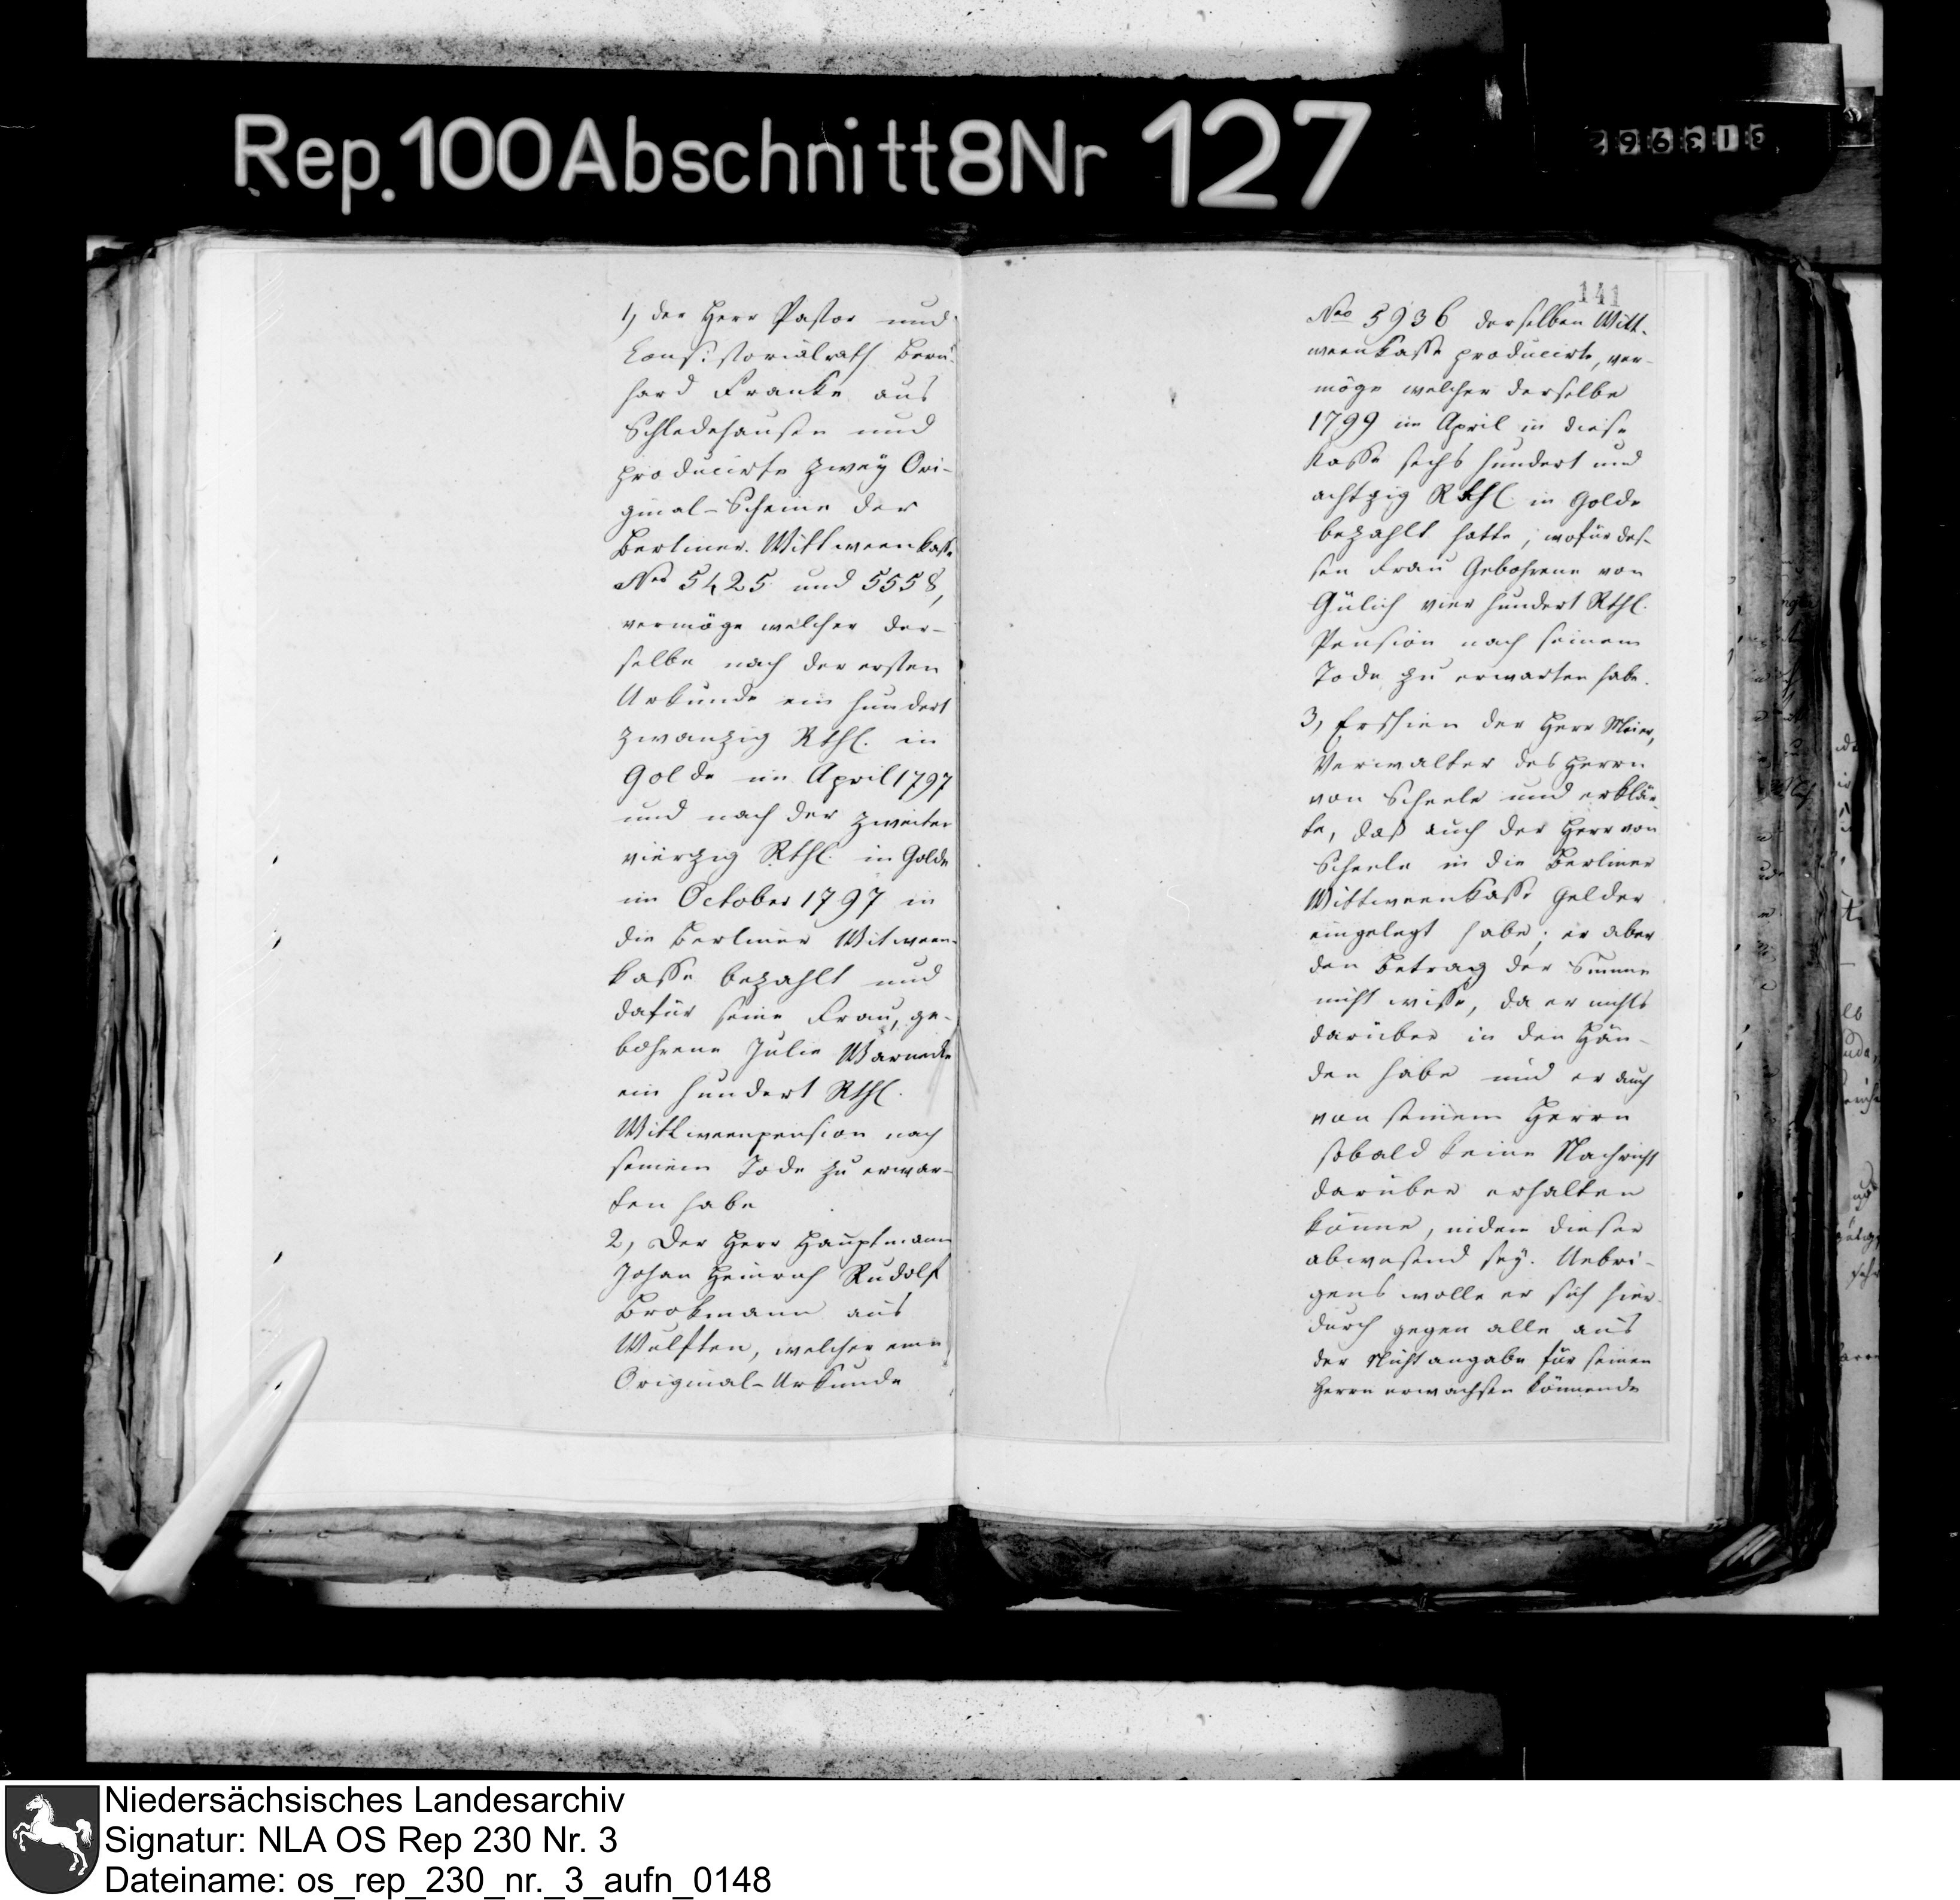 Rep. 100 Abschnitt 8 Nr 127
313962
1, der Herr Pastor und
Consistorialrath Bern-
hard Franke aus
Schledehausen und
producirte zwey Ori-
ginal-Scheine der
Berliner Wittweenkasse
Nro 5425 und 5558,
vermöge welcher der-
selbe nach der ersten
Urkunde ein hundert
zwanzig Rthl. in
Golde im April 1797
und nach der zweiten
vierzig Rthl. in Golde
im October 1797 in
die Berliner Witween-
kasse bezahlt und
dafür seine Frau, ge-
bohrene Julie Warnecke
ein hundert Rthl.
Wittweenpension nach
seinem Tode zu erwar-
ten habe
2, Der Herr Hauptmann
Johan Heinrich Rudolf
Brokmann aus
Wulften, welcher eine
Original-Urkunde
141
Nro 5936 derselben Witt-
weenkasse producirte, ver-
möge welcher derselbe
1799 im April in diese
Kasse sechs hundert und
achtzig Rthl. in Golde
bezahlt hatte, wofür des-
sen Frau Gebohrene von
Gülich vier hundert Rthl.
Pension nach seinem
Tode zu erwarten habe.
3, Erschien der Herr Meier,
Verwalter des Herrn
von Scheele und erklär-
te, daß auch der Herr von
Scheele in die Berliner
Wittweenkasse Gelder
eingelegt habe; er aber
den Betrag der Summe
nicht wisse, da er nichts
darüber in den Hän-
den habe und er auch
von seinem Herrn
sobald keine Nachricht
darüber erhalten
könne, indem dieser
abwesend sey. Uebri-
gens wolle er sich hier-
durch gegen alle aus
der Nichtangabe für seinen
Herrn erwachsen könnende
Niedersächsisches Landesarchiv
Signatur: NLA OS Rep 230 Nr. 3
Dateiname: os_rep_230_nr._3_aufn_0148